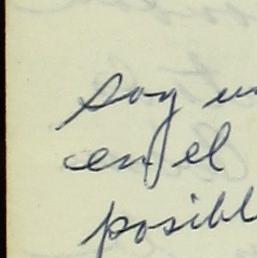 Soy un
en el
posibl